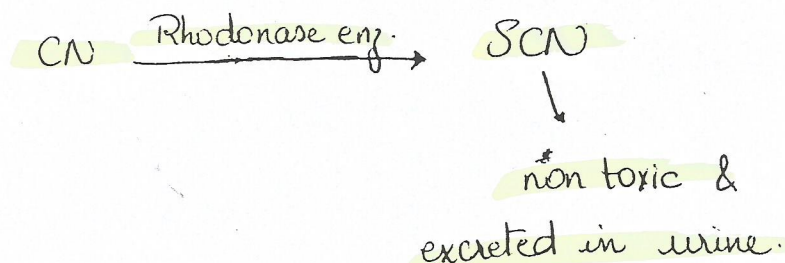 CN Rhodonase enz. SCN
non toxic &
excreted in urine.